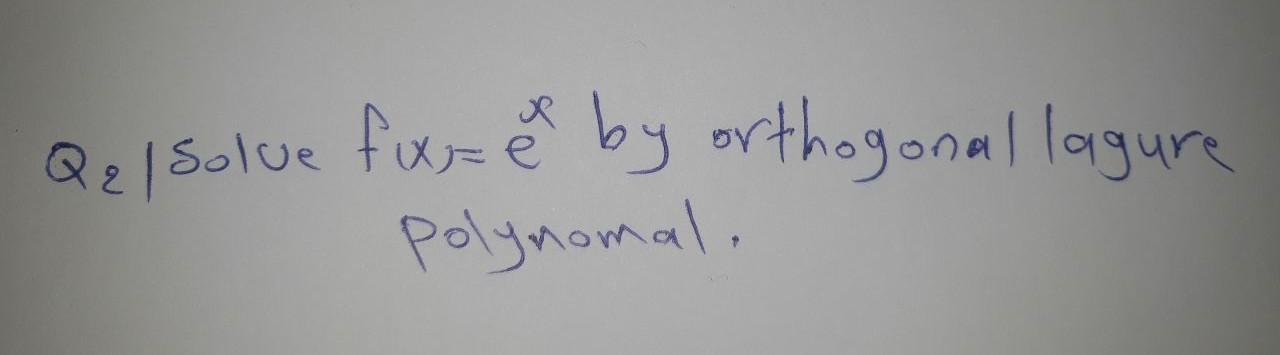 Q2/ Solve f(x)=e^x by orthogonal lagure
polynomal.